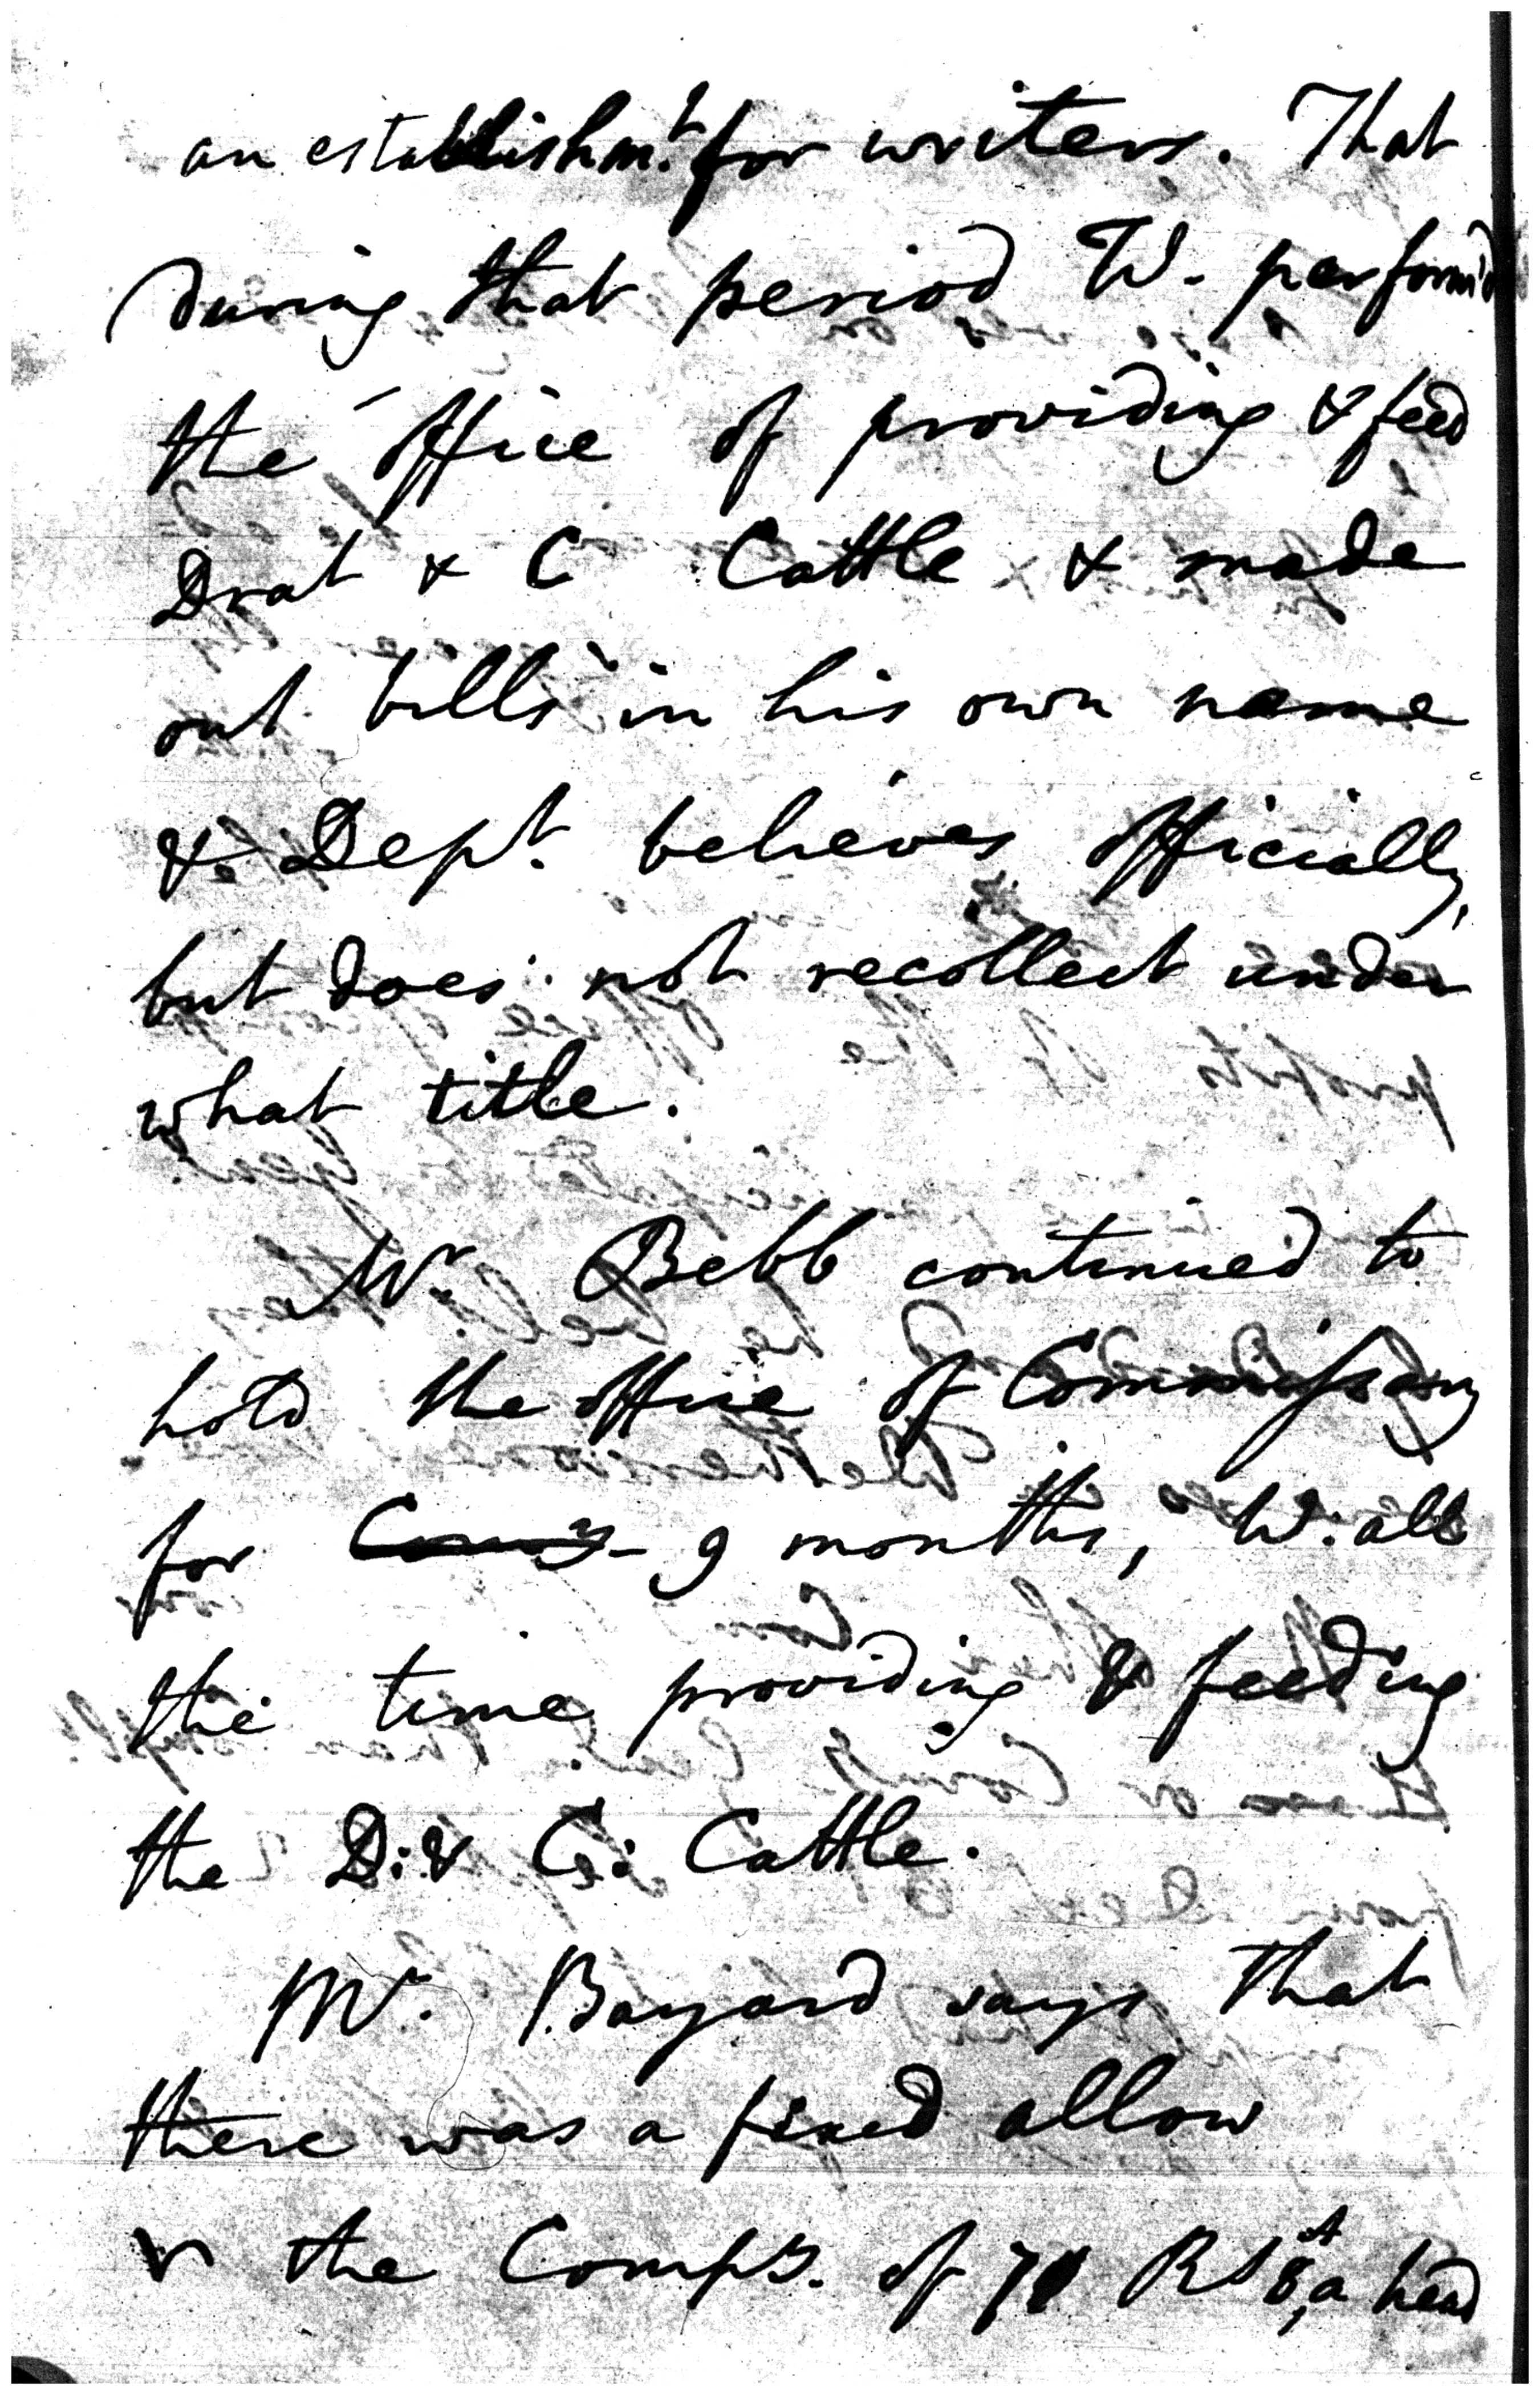 an establishm.t for writers. That
during that period W. perform'd
the office of providing & feed
Drat & C Cattle & made
out bills in his own name
& Dept. believes officially,
but does not recollect under
what title.
Mr Bebb continued to
hold the office of Commissary
for Comy 9 months, W. all
the time providing & feeding
the D: & C: Cattle.
Mr. Bayard says that
there was a fixed allow
the Compy. of 7 Rs 8 a head